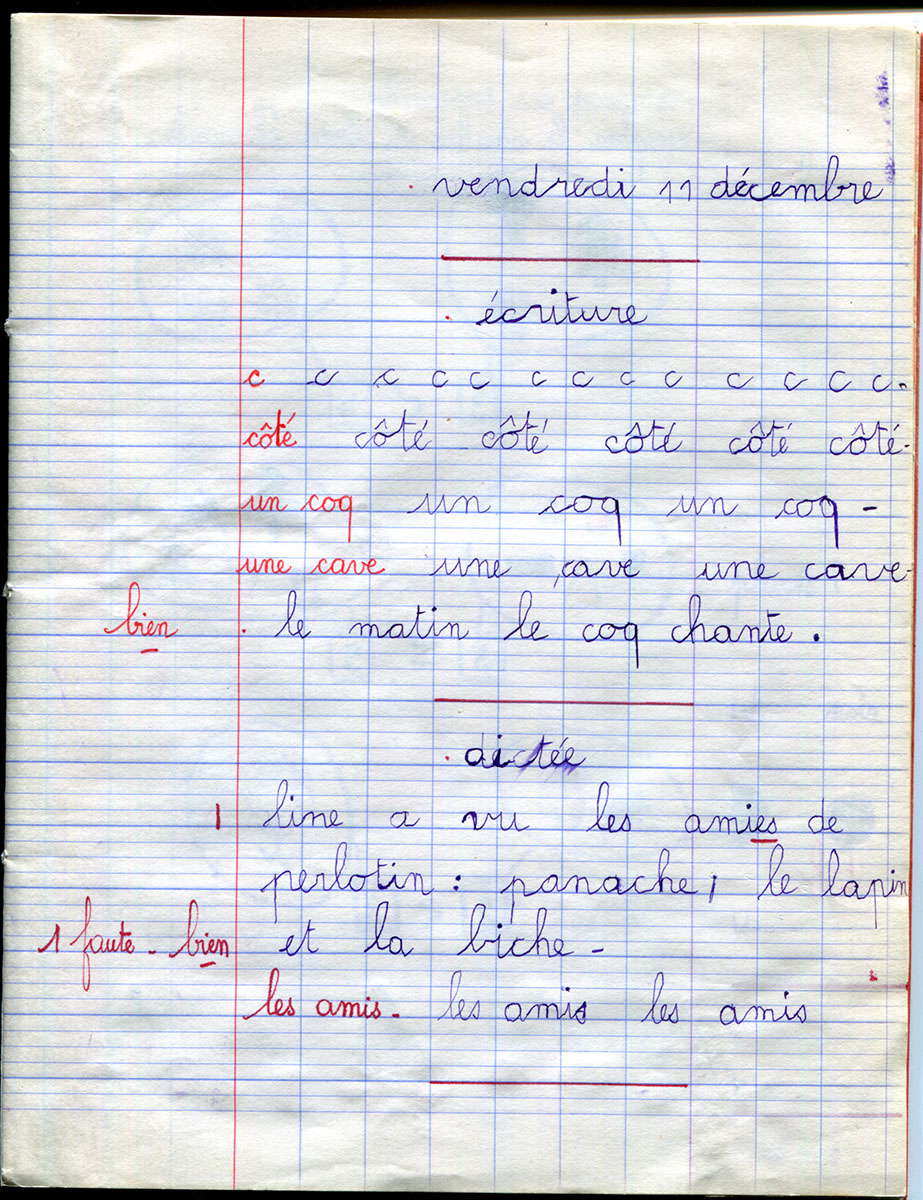 vendredi 11 décembre
écriture
c c c c c c c c c c c c c.
côté côté côté côté côté côté.
un coq un coq un coq -
une cave une cave une cave
bien le matin le coq chante.
dictée
1 line a vu les amies de
perlotin : panache, le lapin
1 faute - bien et la biche -
les amis - les amis les amis